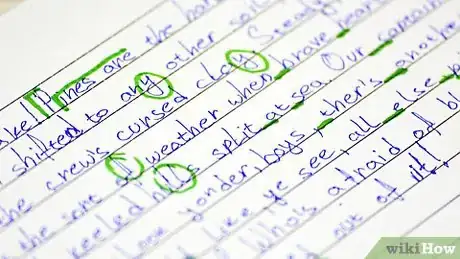 Pines are the
shifted to any other
the crew's cursed clay
the of weather when brave
keeled hills split at sea. Our captain
yonder, boys, ther's another
like ye see, all else
Who's afraid of
out of it!
wikiHow